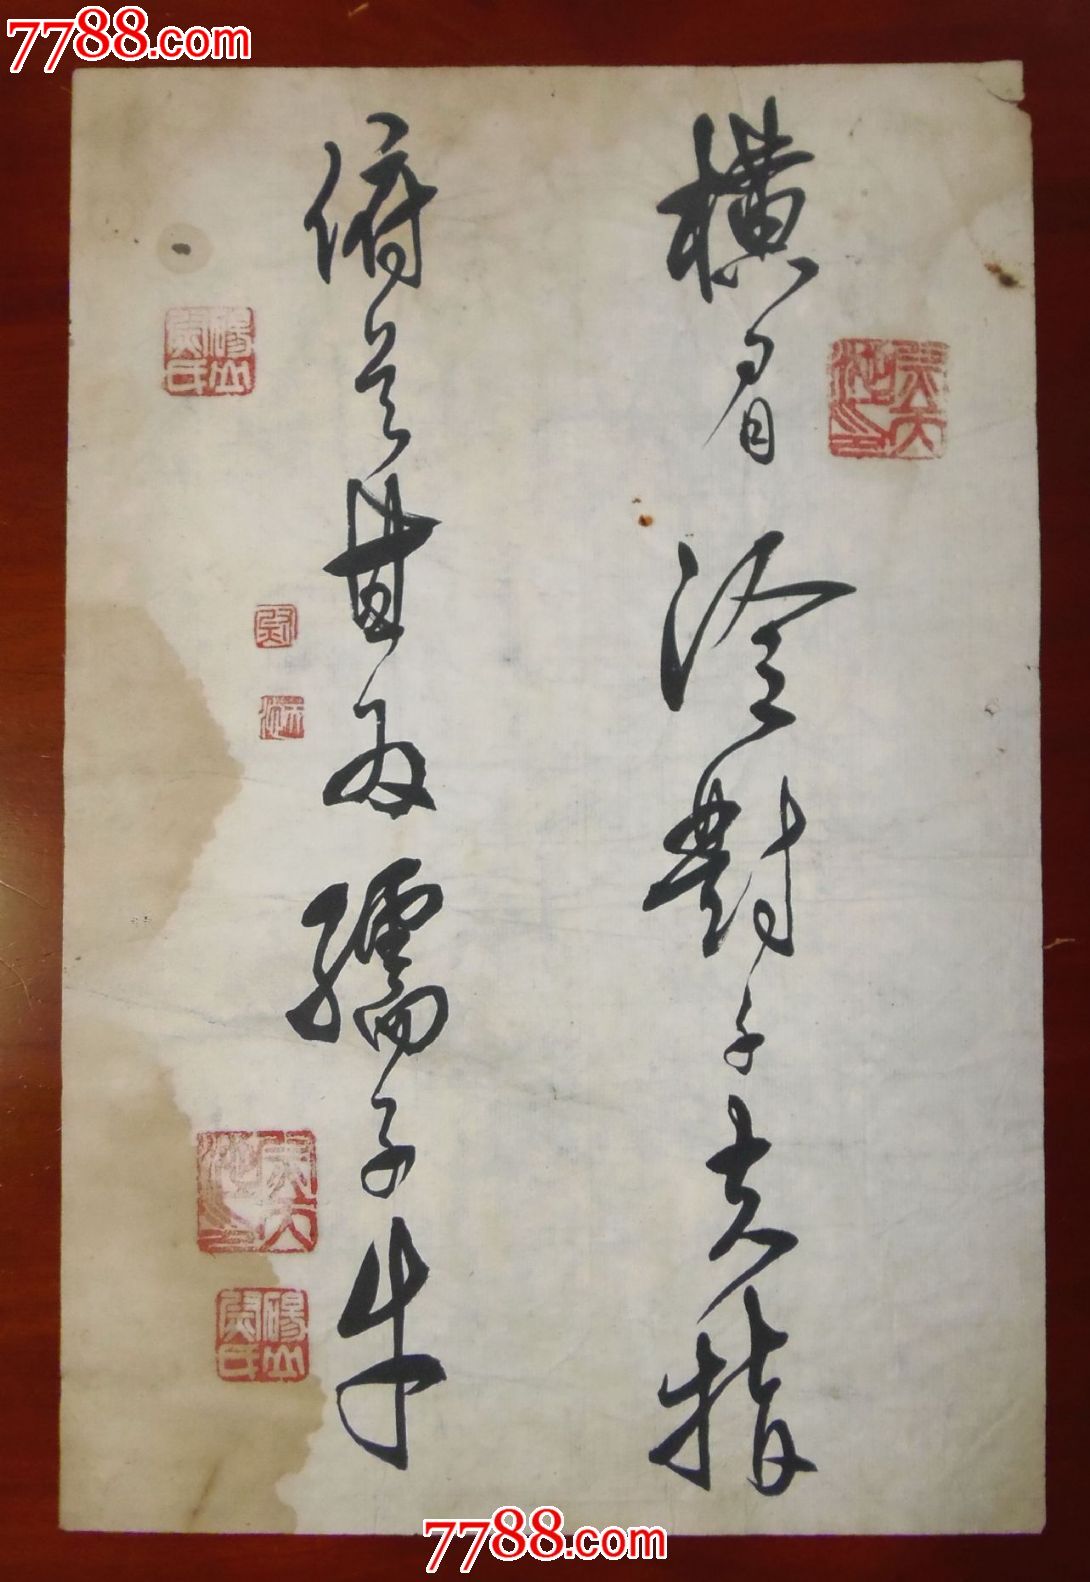 7788.com
橫眉冷對千夫指
俯首甘為孺子牛
7788.com